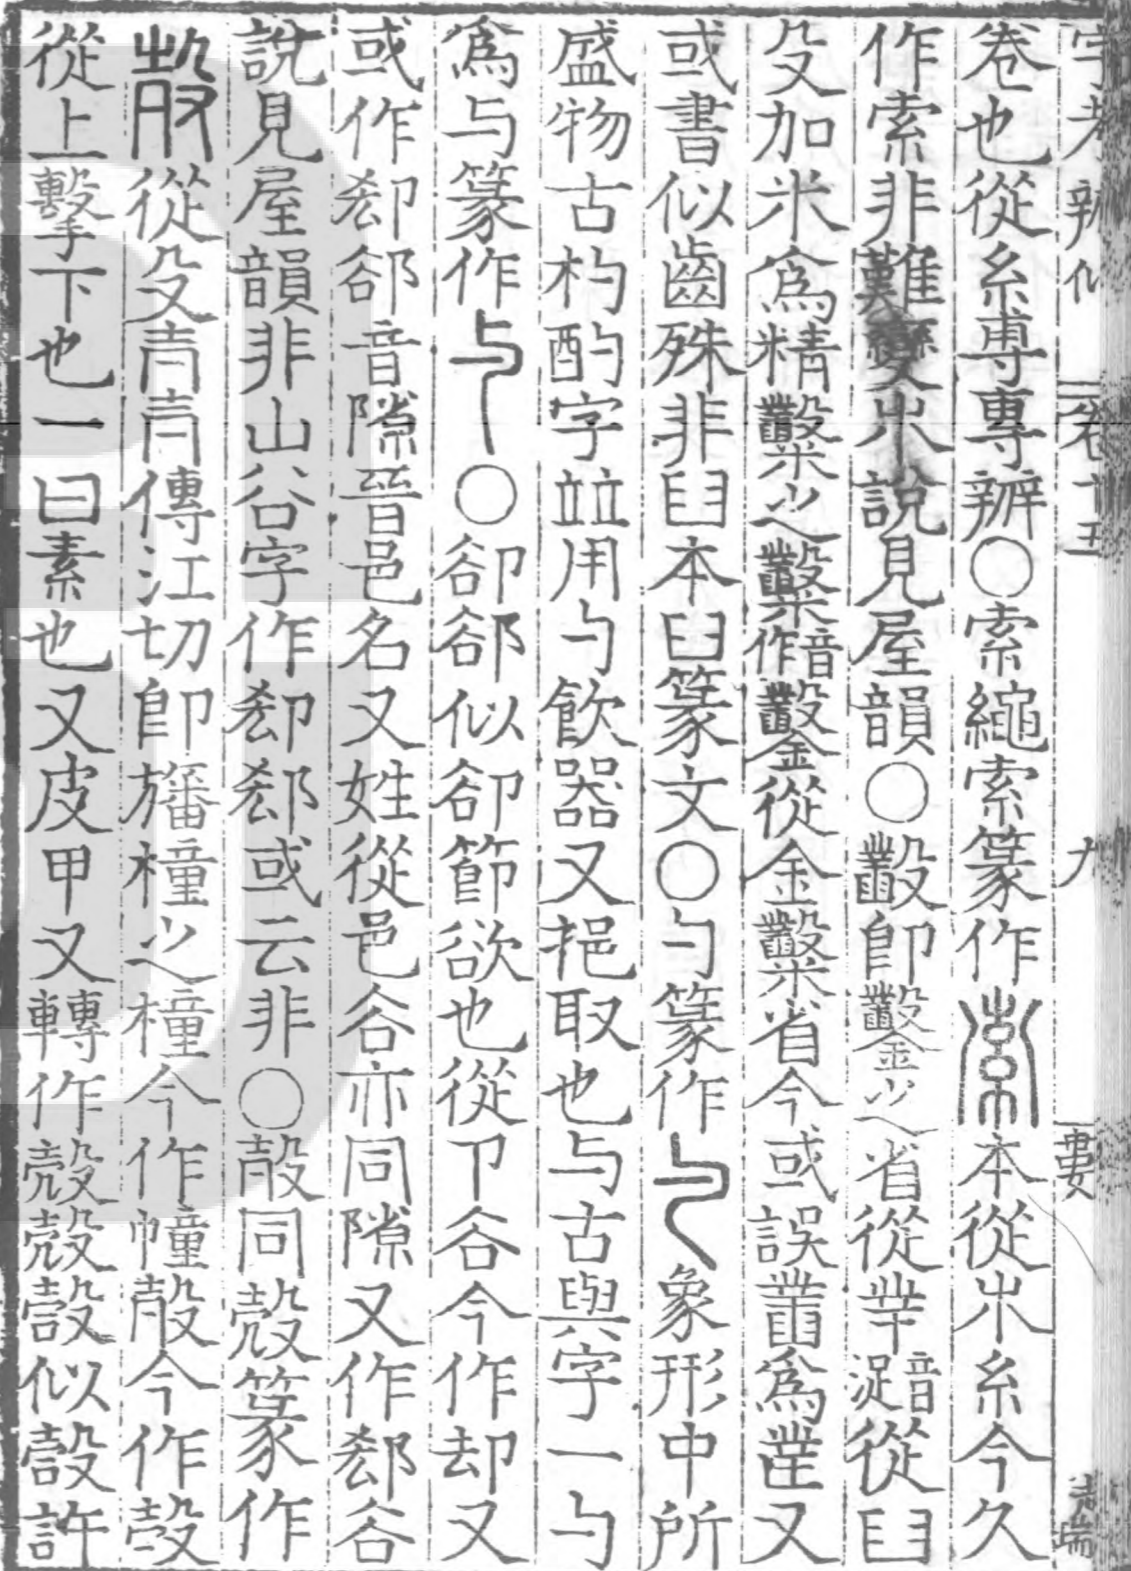 卷也從糸專專辧○索繩索篆作𡩡本從𣎵糸今久
作索非難變𣎵說見屋韻○毇即鑿之省從丵音浞從臼
殳加米爲精糳之糳音作鑿從金糳省今或誤凿爲凿又
或書似齒殊非臼本臼篆文○勺篆作象形中所
盛物古杓酌字並用勺飲器又挹取也与古與字一勺
爲与篆作○卻郤似卻節欲也從卪谷今作却又
或作𨚫郤音隙晉邑名又姓從邑谷亦同隙又作郄谷
說見屋韻非山谷字作𨚫郄或云非○𣪊同殼篆作
從殳𠕯𠕯傳江切即旛橦之橦今作幢𣪊今作㱿
從上擊下也一曰素也又皮甲又轉作殼殼㱿似㱿許